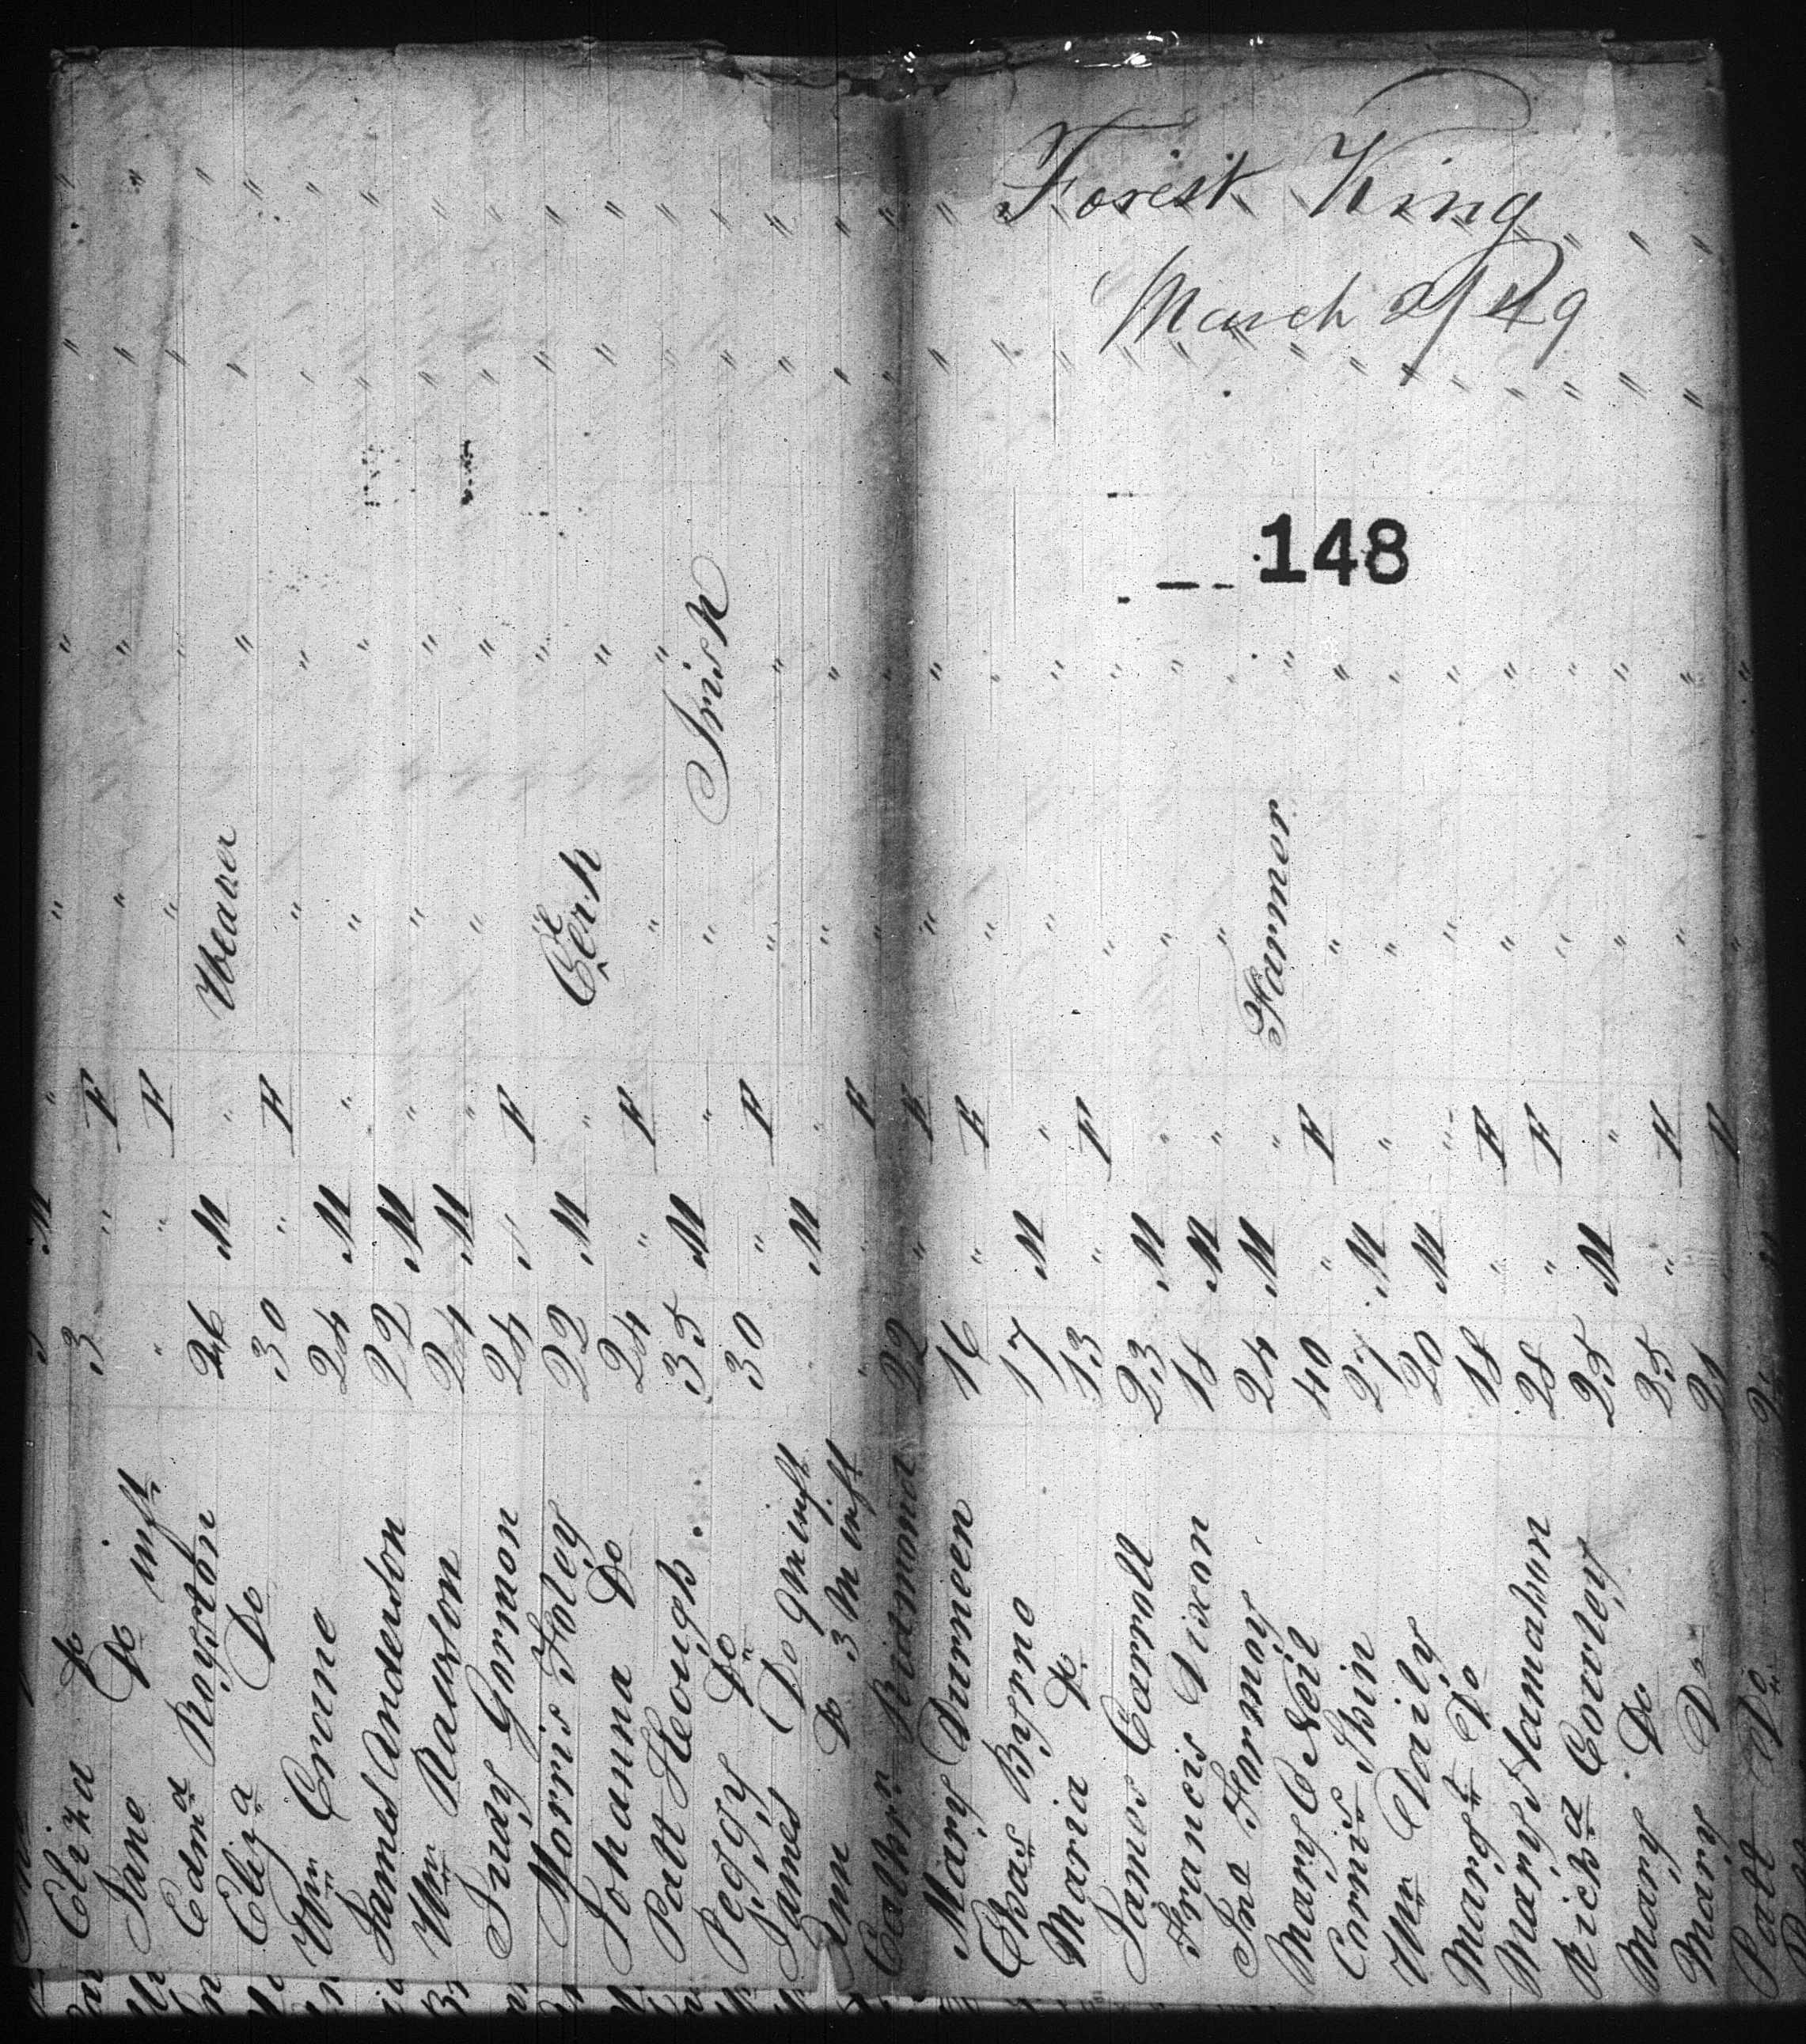 Forest King
March 2/49
148
Eliza Do 3 " F " " " "
Jane Do inft " " F " " " "
Edmd Royston 26 M " Weaver " " "
Eliza Do 30 " F " " "
Wm Crane 24 M " " " " "
James Anderson 22 M " " " " "
Wm Rawson 24 M " " " " "
Judy Gorman 24 " F " " " "
Morris Foley 22 M " Clerk " " "
Johanna Do 24 " F " " "
Patt Heough 35 M " " " " "
Peggy Do 30 " F " Irish " "
James Do 9 M inft " M " " " " "
Ann Do 3 M inft " " F " " " "
Cathn Redmond 22 " F " " " "
Mary Durneen 16 " F " " " "
Chas Byrne 17 M " " " " "
Maria Do 13 " F " " " "
James Carroll 23 M " " " " "
Francis Nixon 18 M " " " " "
Jno Formoy 24 M " Farmor " " "
Mary O Neil 40 " F " " " "
Corns Shin 27 M " " " " "
Wm Daily 20 M " " " " "
Margt Do 18 " F " " " "
Mary Mamahon 28 " F " " " "
Richd Courley 25 M " " " " "
Mary Do 25 " F " " " "
Mary Do 21 " F " " " "
Patt Do